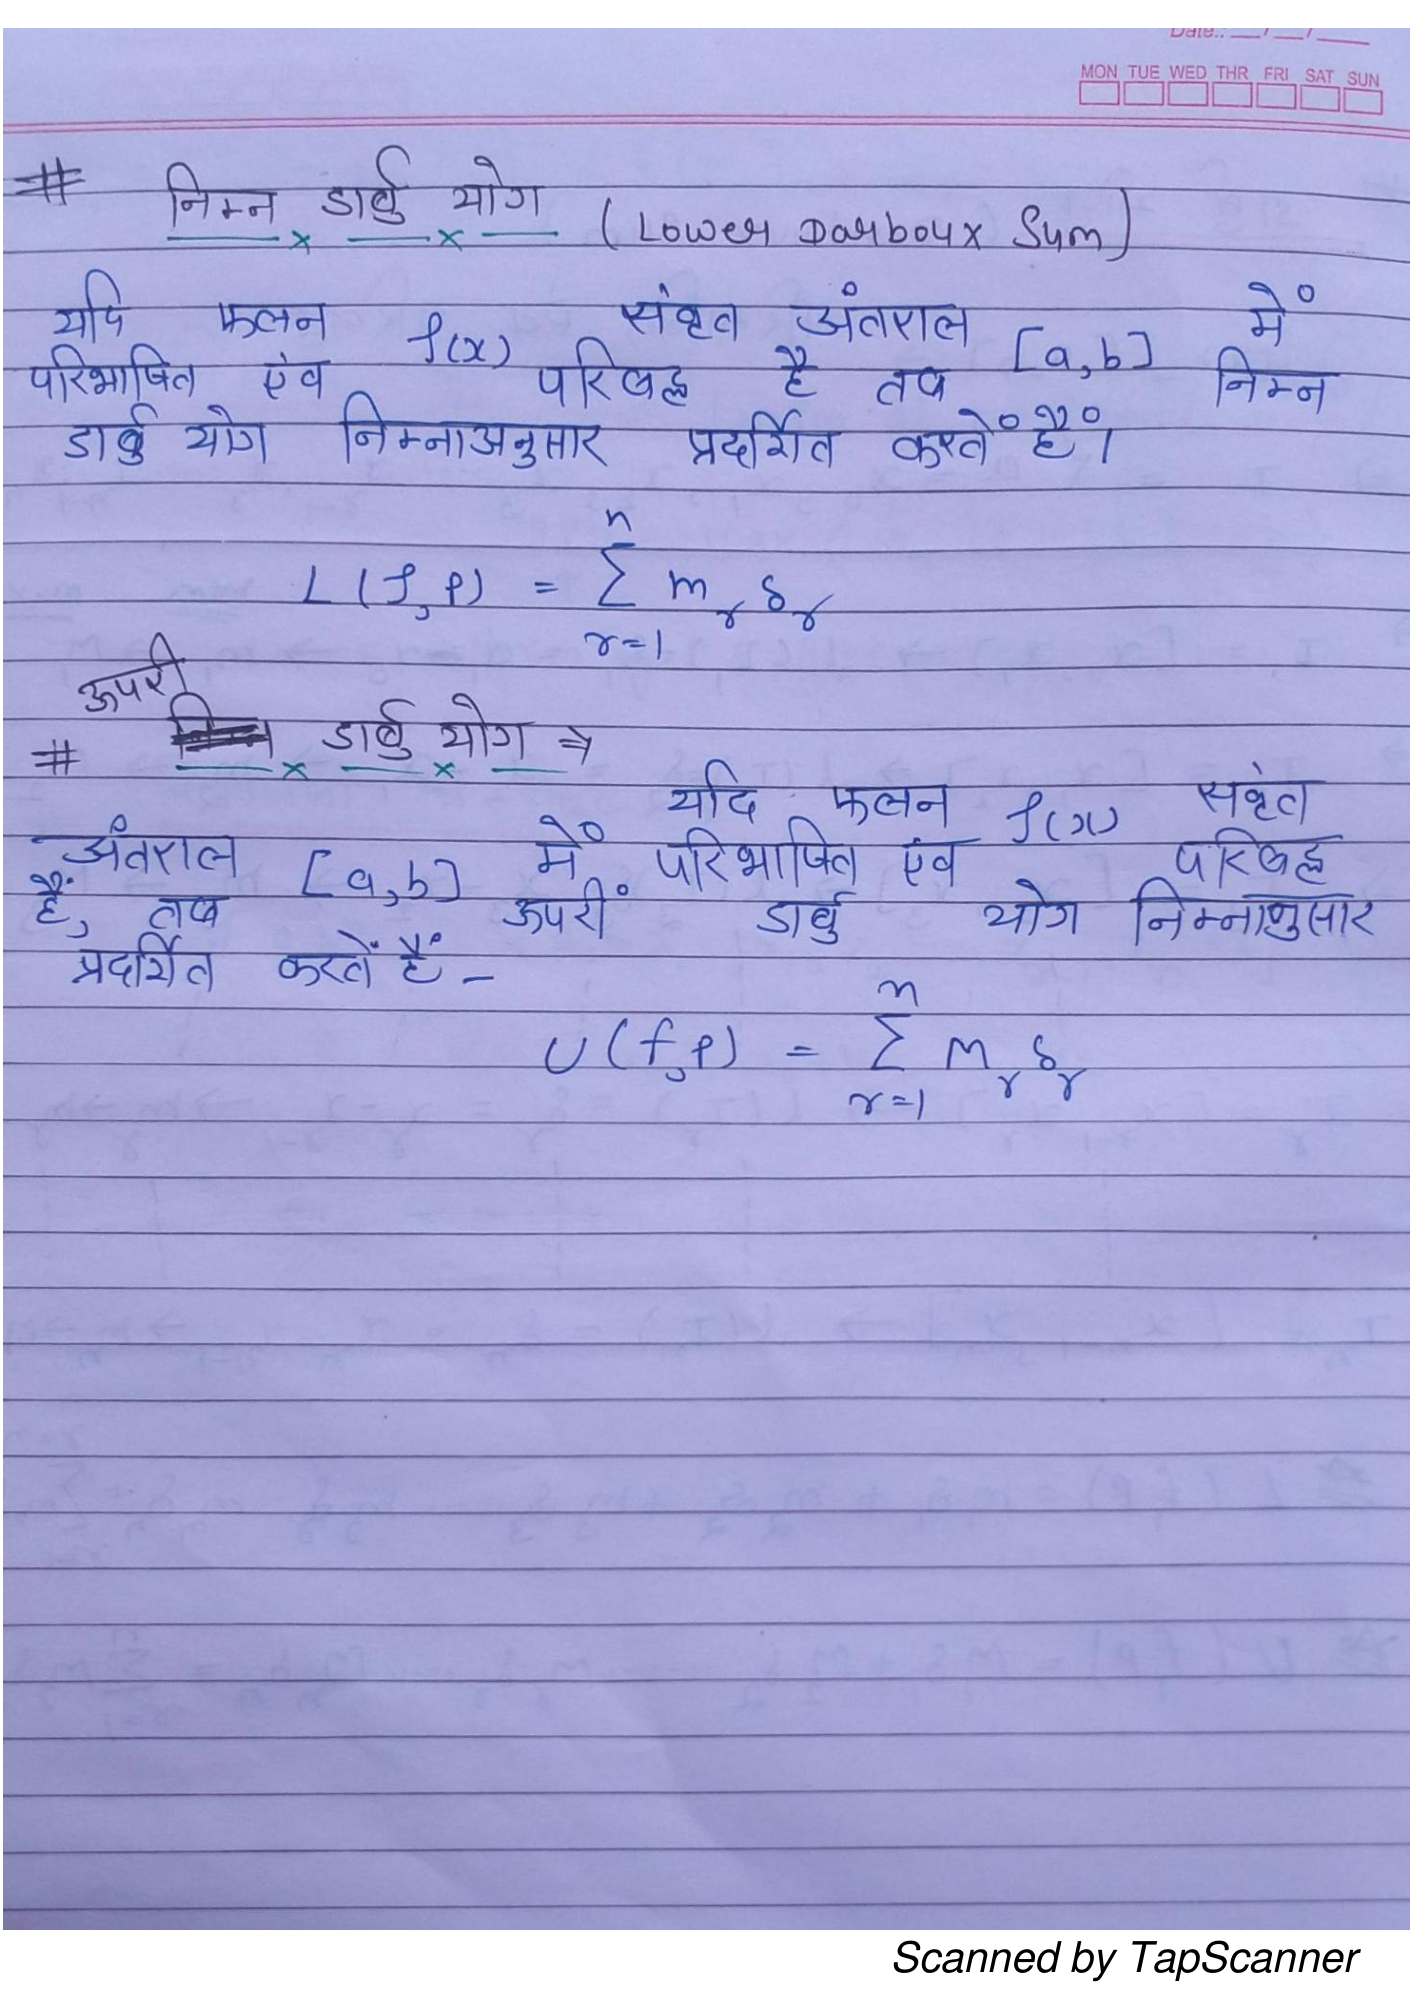 Date.: __/__/__
MON TUE WED THR FRI SAT SUN
# निम्न डार्बु योग (Lower Darboux Sum)
यदि फलन f(x) संवृत अंतराल [a,b] में
परिभाषित एंव परिबद्ध है तब निम्न
डार्बु योग निम्नाअनुसार प्रदर्शित करतें हैं।
n
L(f,P) = ∑ m_r δ_r
r=1
ऊपरी
# डार्बु योग ⇒
यदि फलन f(x) सवृंत
अंतराल [a,b] में परिभाषित एंव परिबद्ध
हैं, तब ऊपरीं डार्बु योग निम्नानुसार
प्रदर्शित करतें हैं -
n
U(f,P) = ∑ M_r δ_r
r=1
Scanned by TapScanner